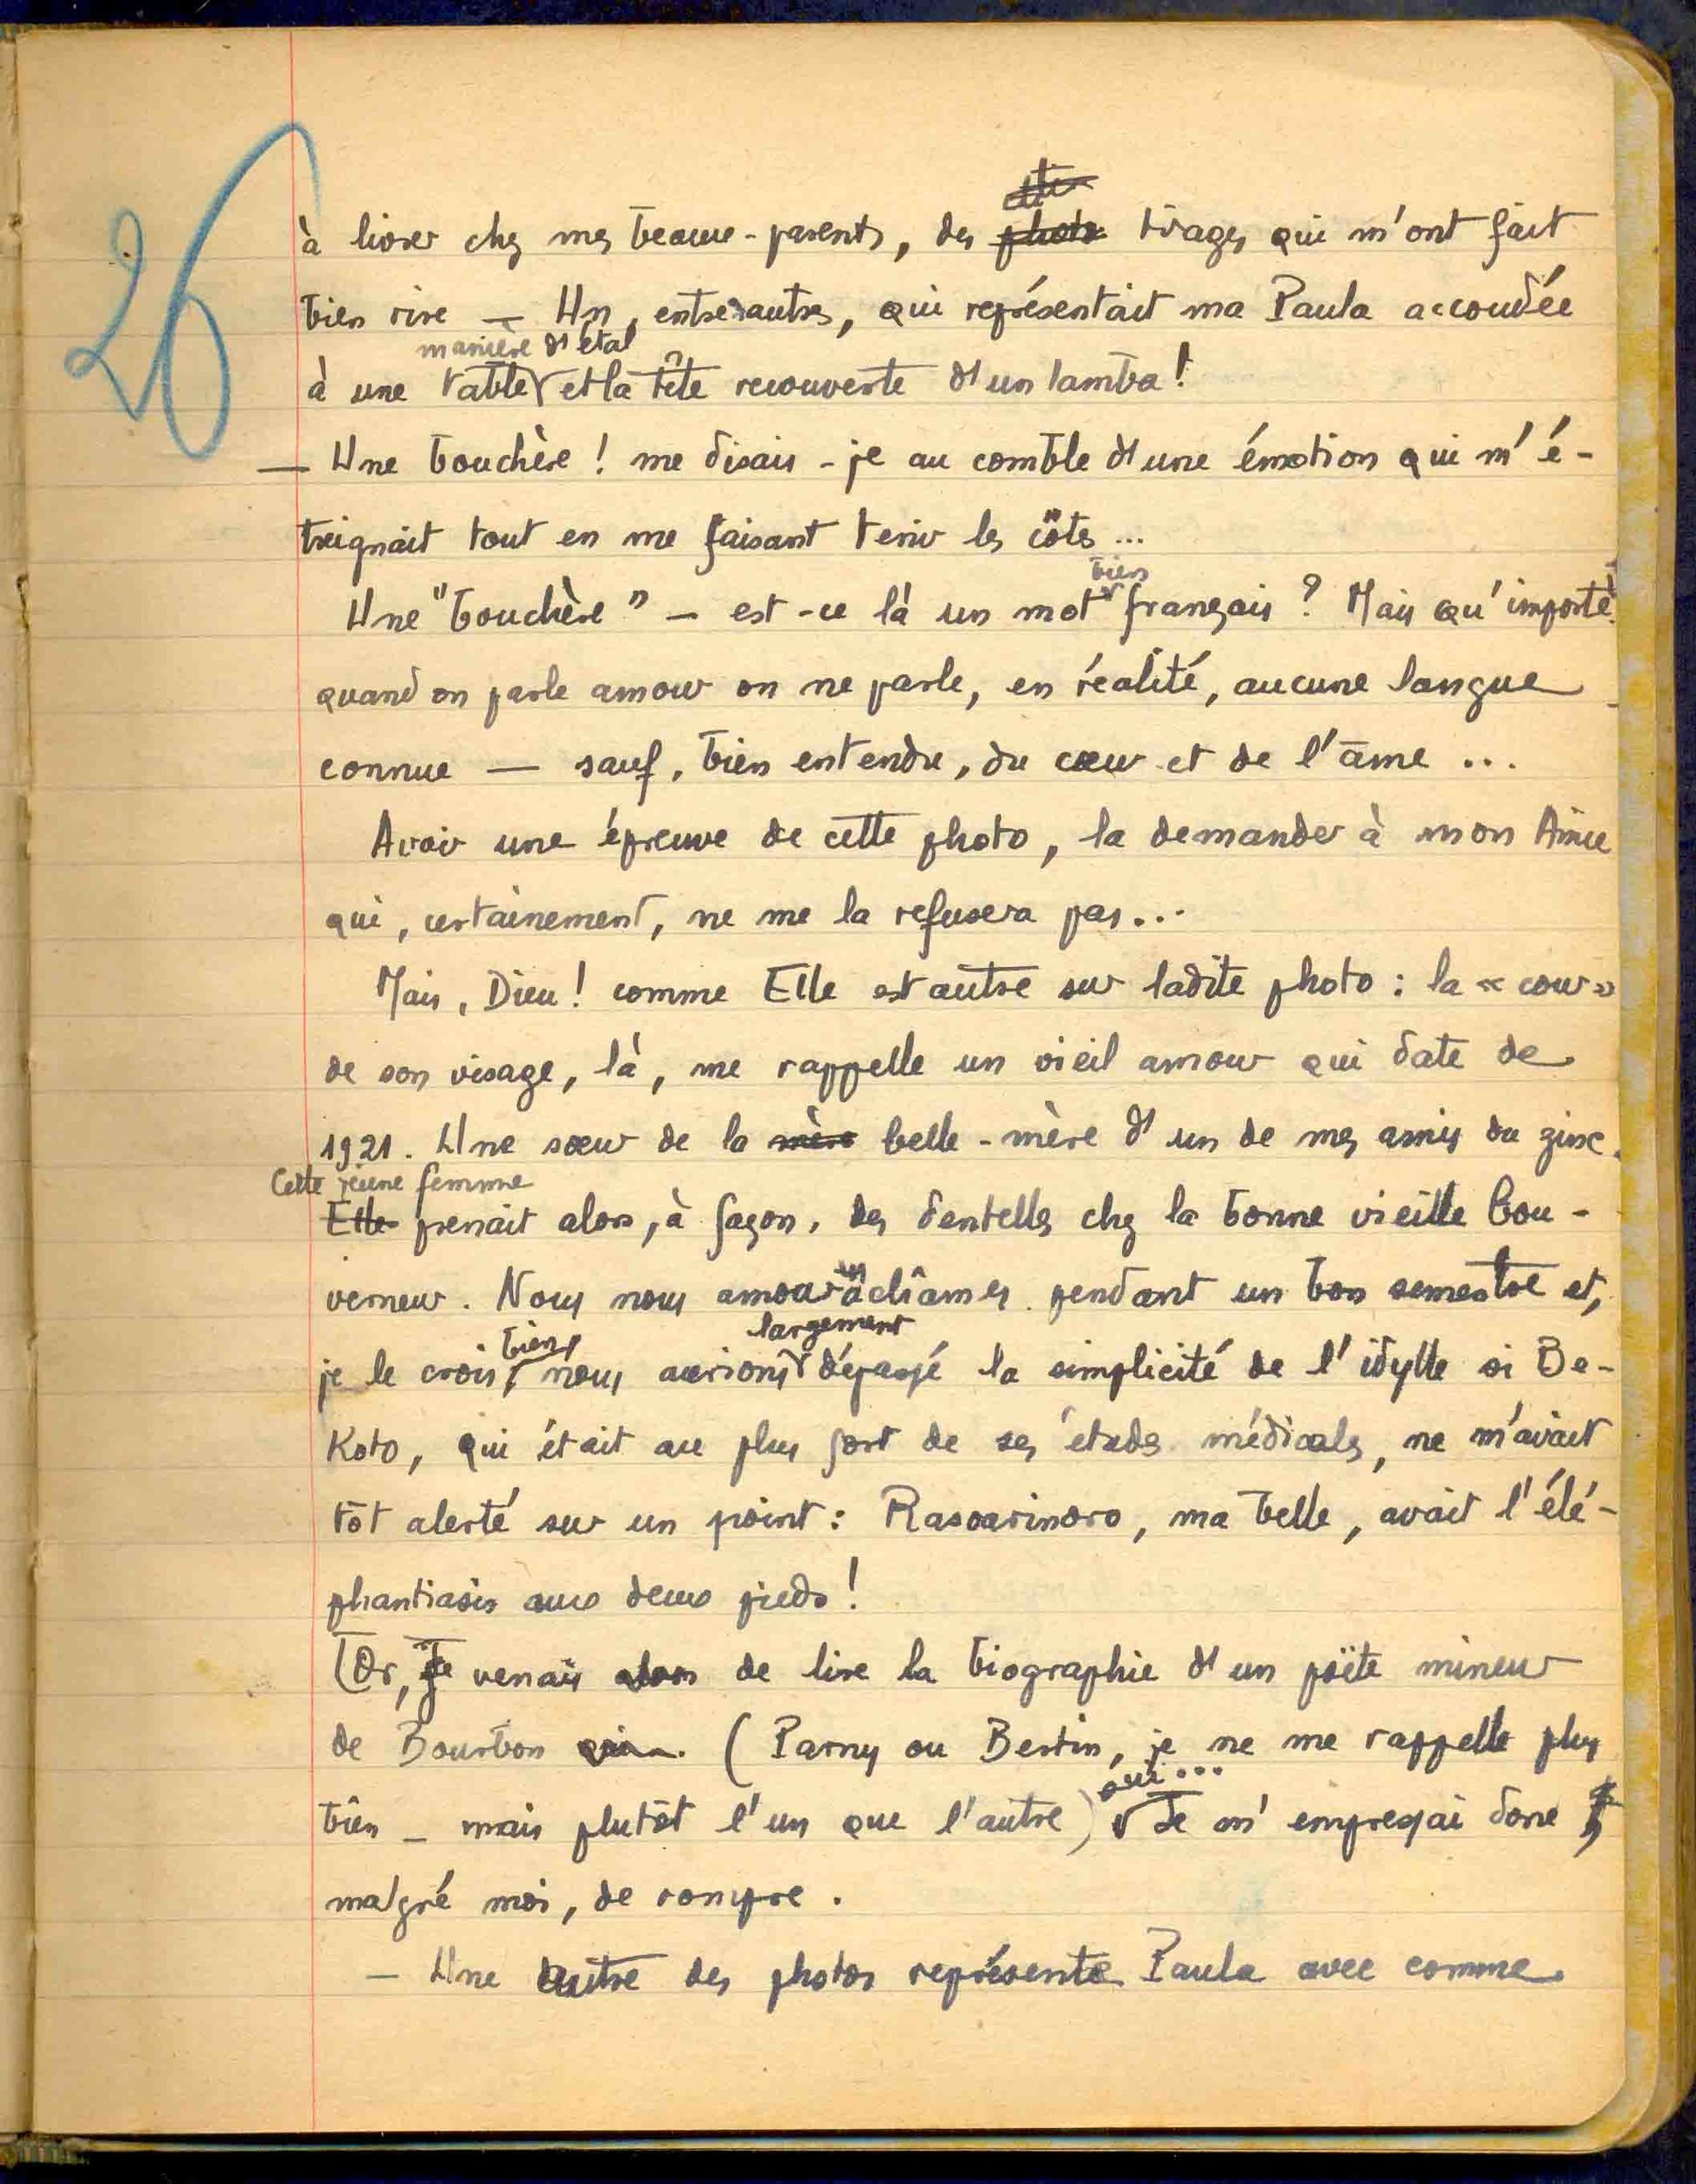 26
à livrer chez mes beaux-parents, des photos tirages qui m'ont fait
bien rire — Un, entre autres, qui représentait ma Paula accoudée
manière d'étal
à une table et la tête recouverte d'un lamba !
— Une bouchère ! me disais-je au comble d'une émotion qui m'é-
treignait tout en me faisant tenir les côtes ...
bien
Une "bouchère" — est-ce là un mot français ? Mais qu'importe !
quand on parle amour on ne parle, en réalité, aucune langue
connue — sauf, bien entendu, du cœur et de l'âme ...
Avoir une épreuve de cette photo, la demander à mon Aimée
qui, certainement, ne me la refusera pas...
Mais, Dieu ! comme Elle est autre sur ladite photo : la « cour »
de son visage, là, me rappelle un vieil amour qui date de
1921. Une sœur de la mère belle-mère d'un de mes amis du zinc.
Cette jeune femme
Elle prenait alors, à façon, des dentelles chez la bonne vieille Gou-
verneur. Nous nous amourachâmes pendant un bon semestre et,
bien largement
je le crois, nous aurions dépassé la simplicité de l'idylle si Be-
Koto, qui était au plus fort de ses études médicales, ne m'avait
tôt alerté sur un point : Rasoarinoro, ma belle, avait l'élé-
phantiasis aux deux pieds !
Or, je venais alors de lire la biographie d'un poëte mineur
de Bourbon qui (Parny ou Bertin, je ne me rappelle plus
qui...
bien — mais plutôt l'un que l'autre) Je m'empressai donc,
malgré moi, de rompre.
— Une autre des photos représente Paula avec comme